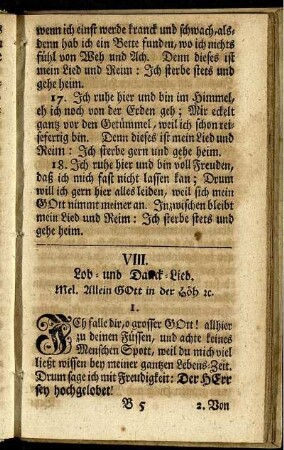 wenn ich einst werde kranck und schwach, als-
denn hab ich ein Bette funden, wo ich nichts
fühl von Weh und Ach. Denn dieses ist
mein Lied und Reim: Ich sterbe stets und
gehe heim.
17. Ich ruhe hier und bin im Himmel,
eh ich noch von der Erden geh; Mir eckelt
gantz vor den Getümmel, weil ich schon rei-
sefertig bin. Denn dieses ist mein Lied und
Reim: Ich sterbe gern und gehe heim.
18. Ich ruhe hier und bin voll Freuden,
daß ich mich fast nicht lassen kan; Drum
will ich gern hier alles leiden, weil sich mein
GOtt nimmt meiner an. Inzwischen bleibt
mein Lied und Reim: Ich sterbe stets und
gehe heim.
VIII.
Lob- und Danck-Lied.
Mel. Allein GOtt in der Höh ꝛc.
1.
ICh falle dir, o grosser GOtt! allhier
zu deinen Füssen, und achte keines
Menschen Spott, weil du mich viel
ließt wissen bey meiner gantzen Lebens-Zeit.
Drum sage ich mit Freudigkeit: Der HErr
sey hochgelobet!
B 5 2. Von